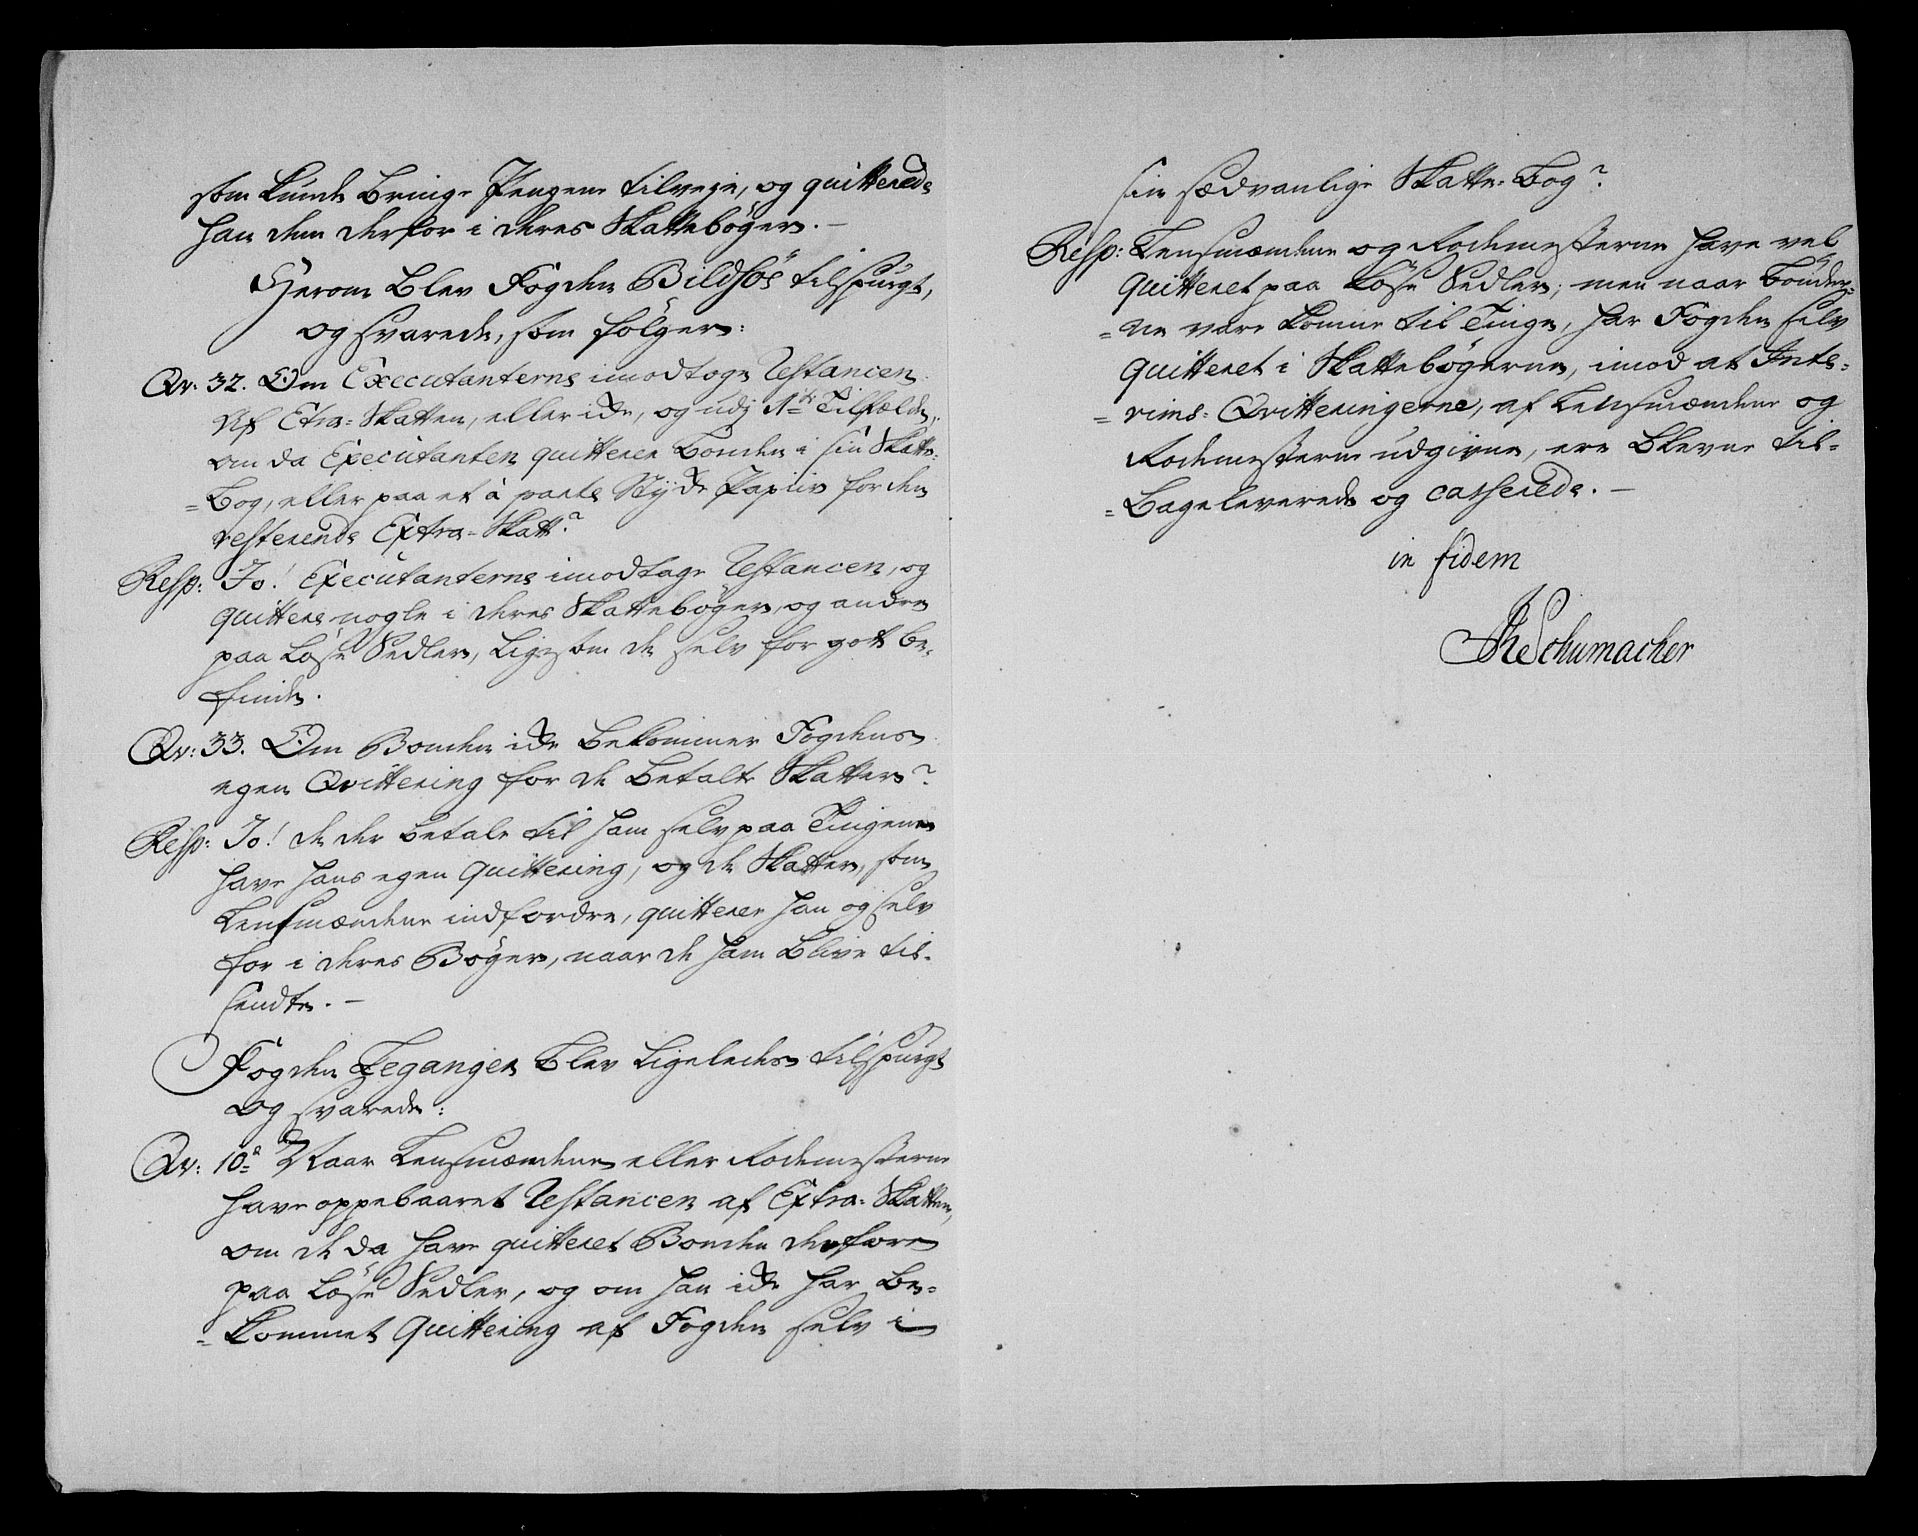 som kunde bringe Pengene tilveje, og quitterede
han dem derfor i deres Skattebøger. –
Herom blev Fogden Bildsøe tilspurgt,
og svarede, som følger:
Qv: 32. Om Executanterne imodtoge Restancen
af Extra-Skatten, eller icke, og udj 1ste Tilfælde,
om da Executanten quitterer Bonden i sin Skatte-
=Bog, eller paa et à parte Stycke Papiir for den
resterende Extra-Skatt?
Resp: Jo! Executanterne imodtage Restancen, og
quittere nogle i deres Skattebøger, og andre
paa løse Sedler, ligesom de selv for got be-
finde.
Qv: 33. Om Bonden icke bekommer Fogdens
egen Qvittering for de betalte Skatter?
Resp: Jo! de der betale til ham selv paa Tingene
have hans egen Quittering, og de Skatter, som
Lensmændene indfordre, quitterer han og selv
for i deres Bøger, naar de ham blive til-
sendte. –
Fogden Fegangen blev ligeledes tilspurgt
og svarede:
Qv: 10de Naar Lensmændene eller Rodemesterne
have oppebaaret Restancen af Extra-Skatten,
om de da have quitteret Bonden derfore
paa løse Sedler, og om han icke har be-
=kommet Quittering af Fogden selv i
sin sædvanlige Skatte-Bog?
Resp: Lensmændene og Rodemesterne have vel
quitteret paa løse Sedler; men naar Bønder-
=ne vare komne til Tinge, har Fogden selv
quitteret i Skattebøgerne, imod at Inte-
=rims-Qvitteringerne, af Lensmændene og
Rodemesterne udgivne, ere blevne til-
=bageleverede og casserede. –
in fidem
Schumacher